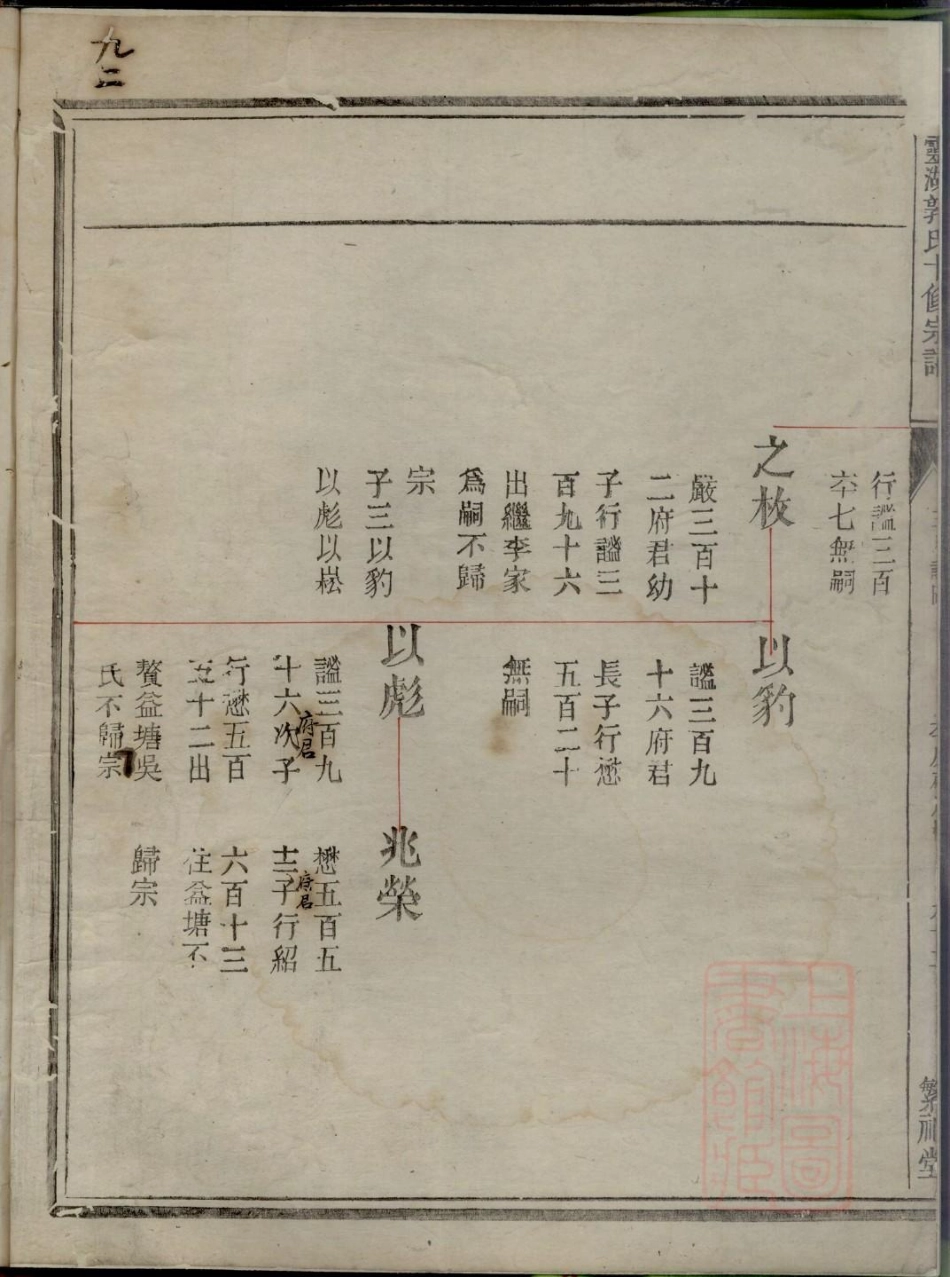 九二
郭氏十修宗譜
繁祉堂
行謐三百
六七無嗣
之枚
嚴三百十
二府君幼
子行謐三
百九十六
出繼李家
為嗣不歸
宗
子三以豹
以彪以崧
以豹
謐三百九
十六府君
長子行懋
五百二十
無嗣
以彪
謐三百九
十六府君次子
行懋五百
五十二出
贅益塘吳
氏不歸宗
兆榮
懋五百五
十二府君子行紹
六百十三
住益塘不
歸宗
上海圖
書館藏